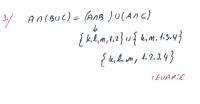 3./ A∩(B∪C) = (A∩B) ∪ (A∩C)
{k,l,m,1,2} ∪ {k,m,1,3,4}
{k,l,m, 1,2,3,4}